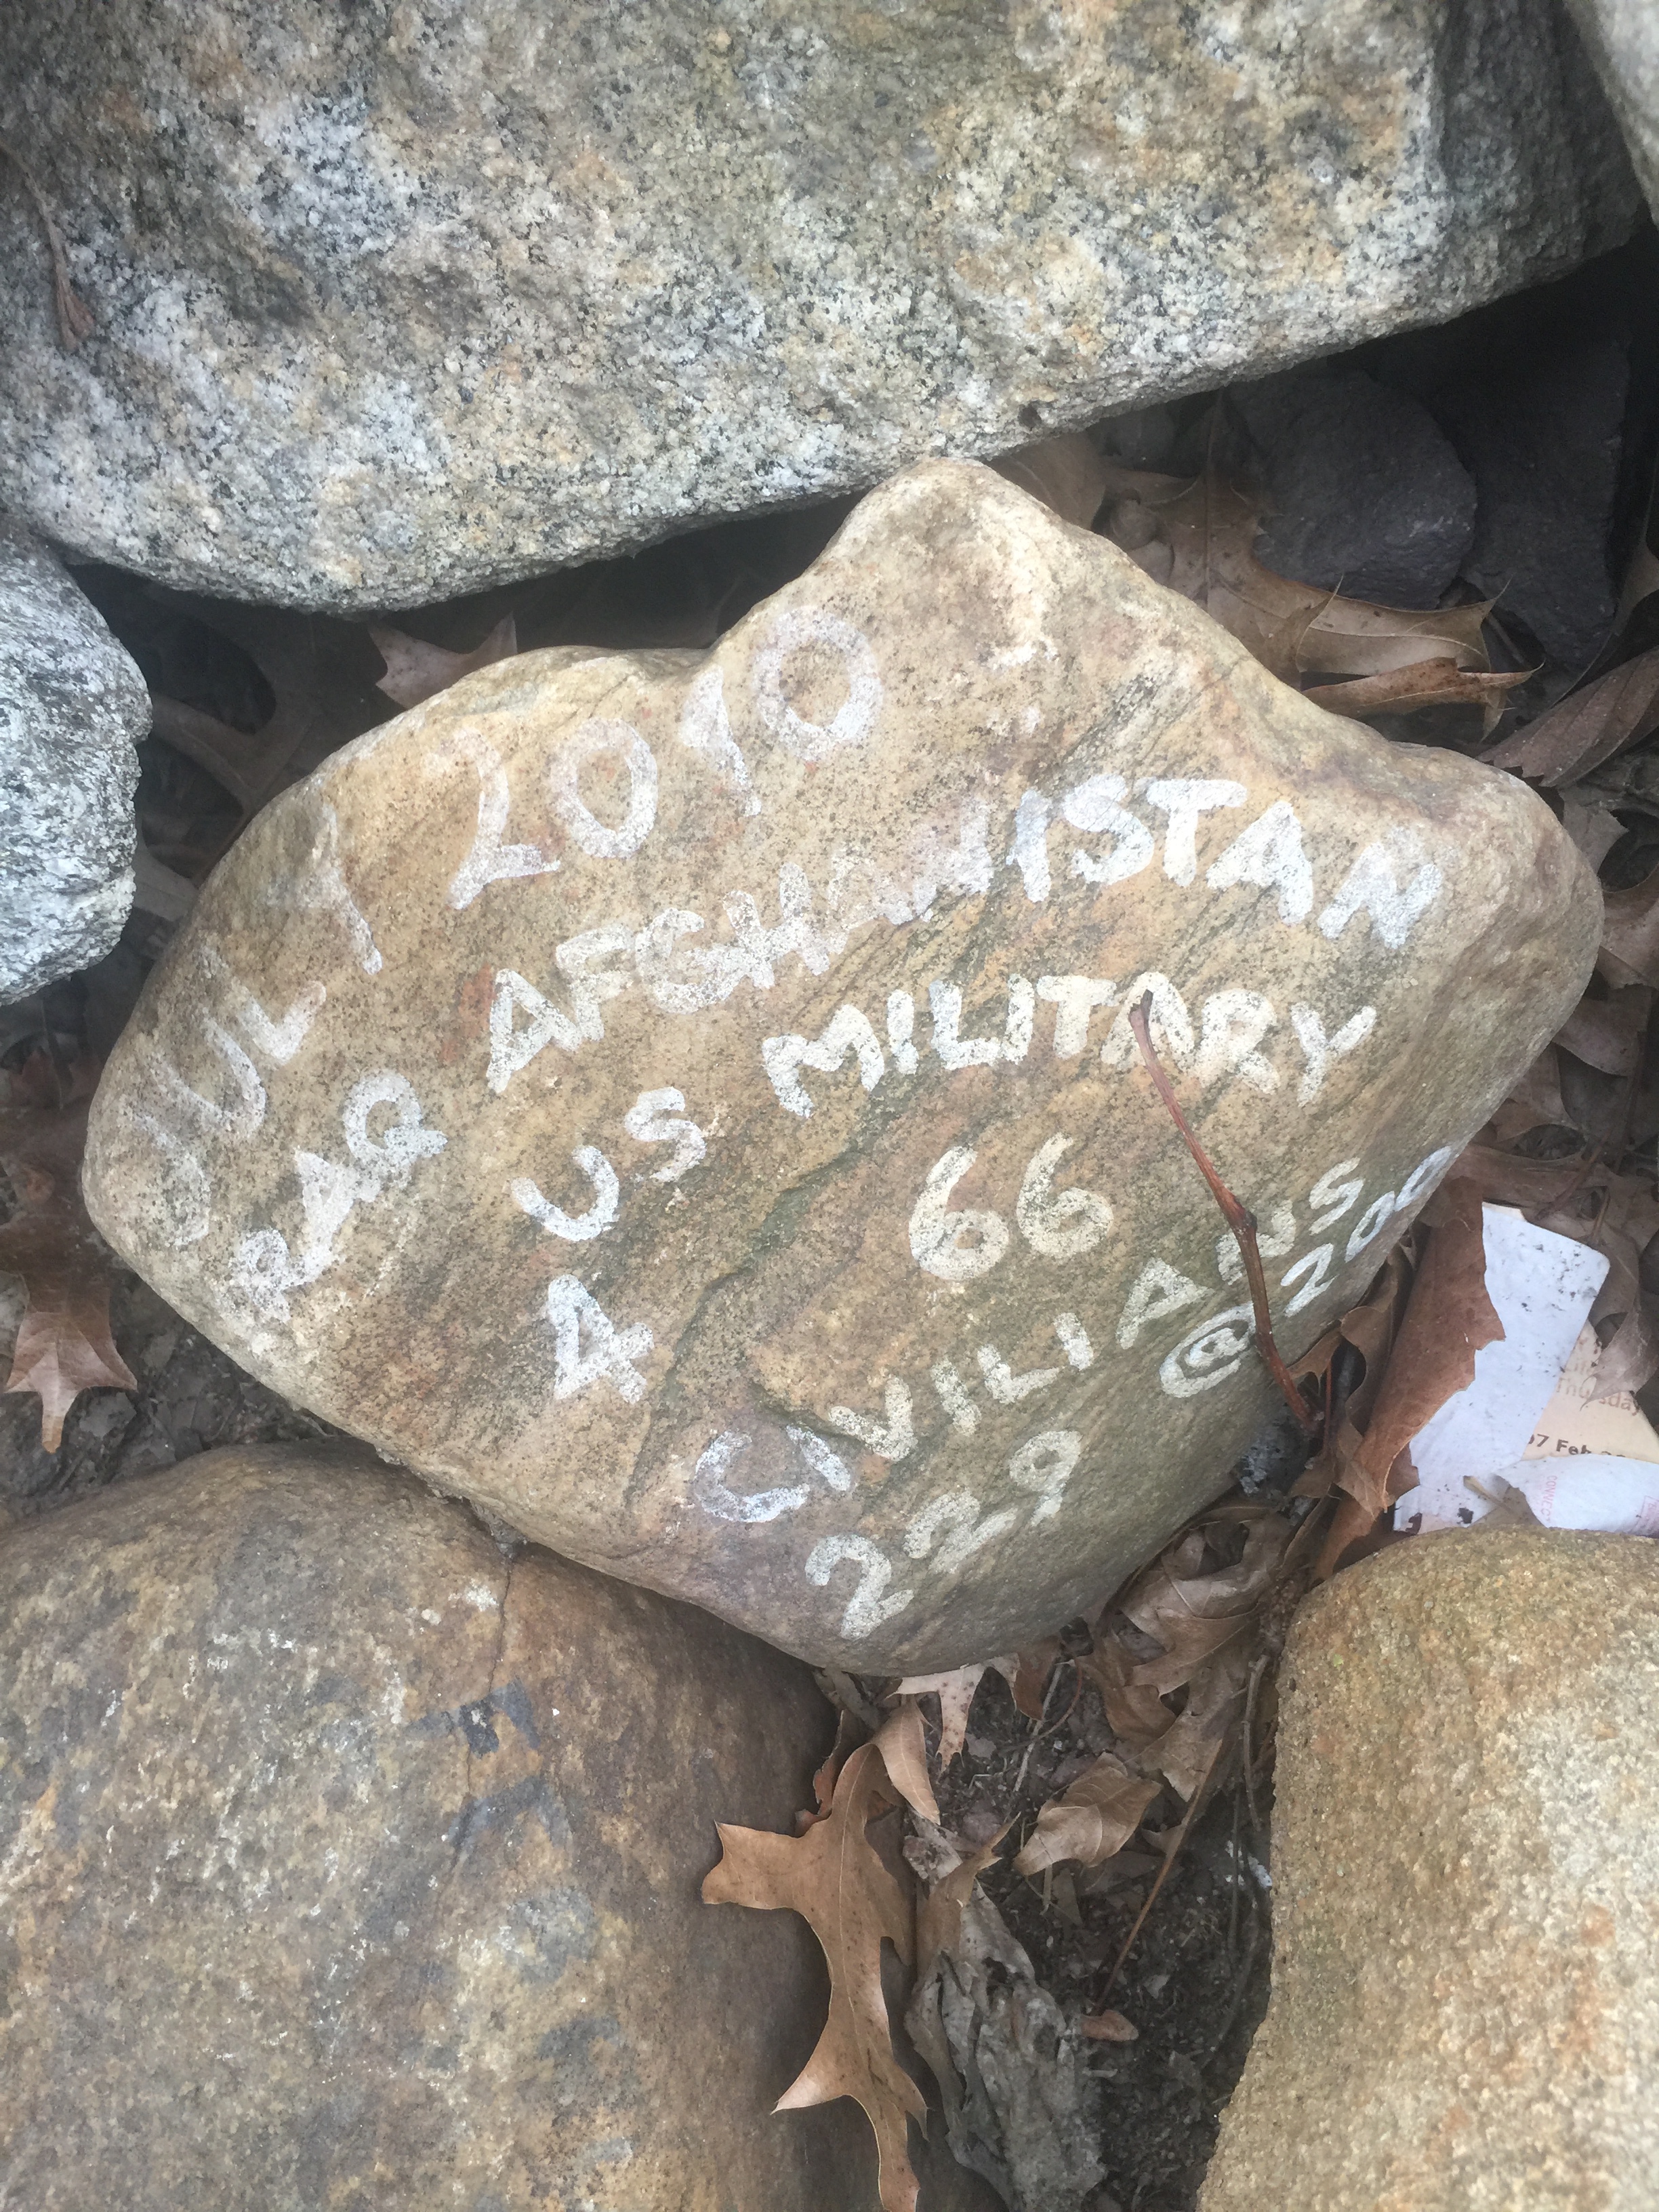 JULY 2010
RAQ AFGHANISTAN
US MILITARY
4 66
CIVILIANS
229 @200
07 Feb